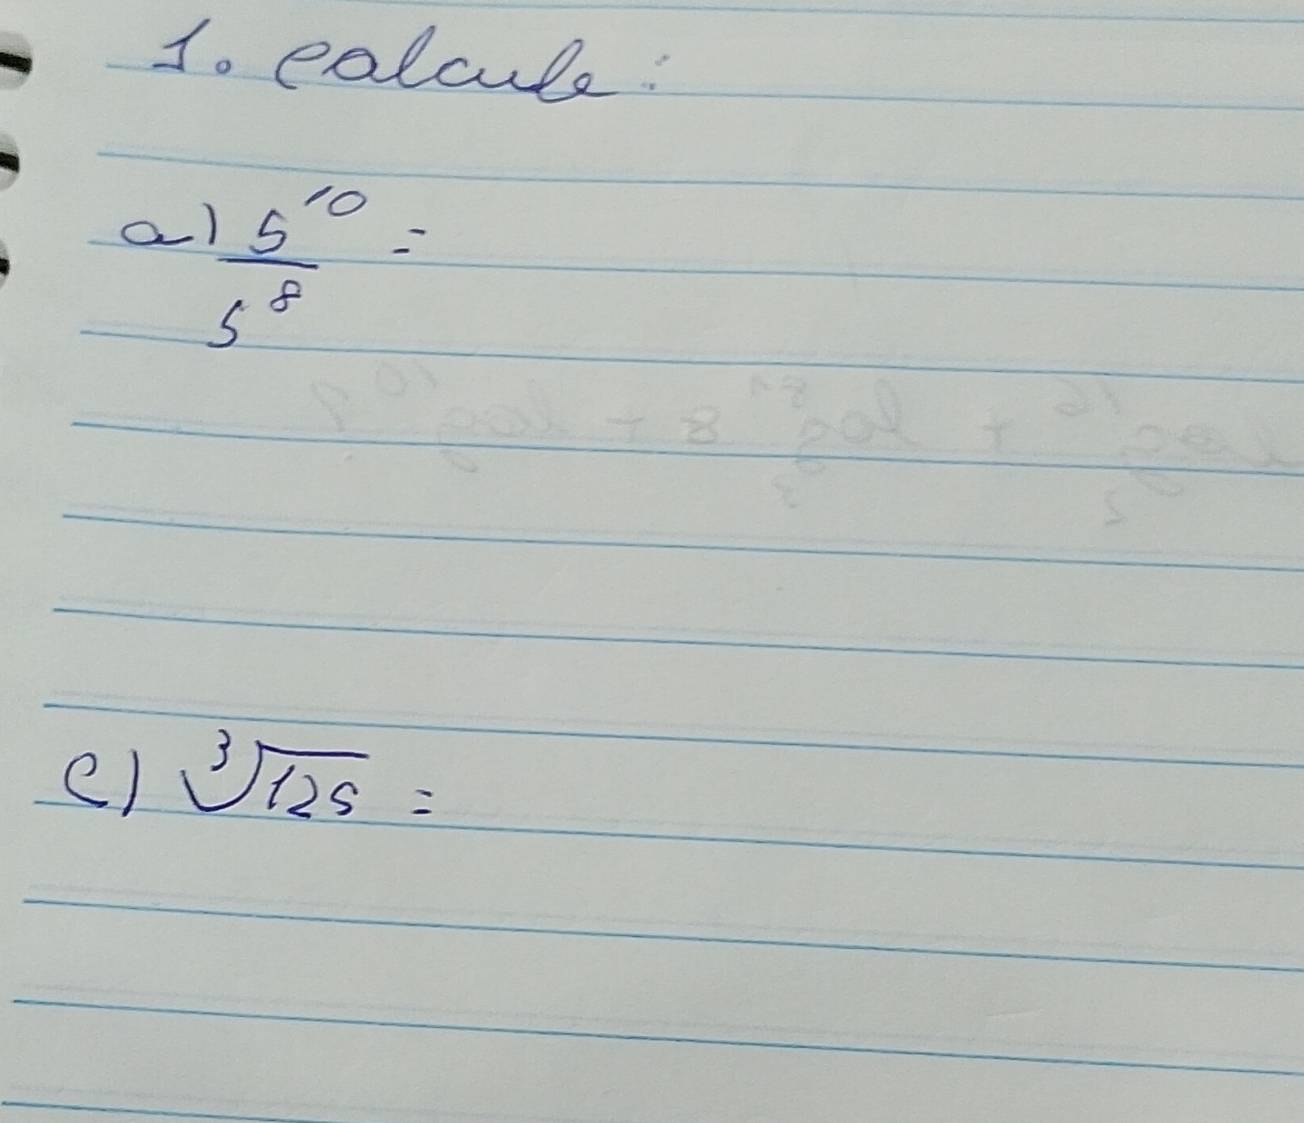 1. calcule:
a) 5^10 / 5^8 =
c) ∛125 =